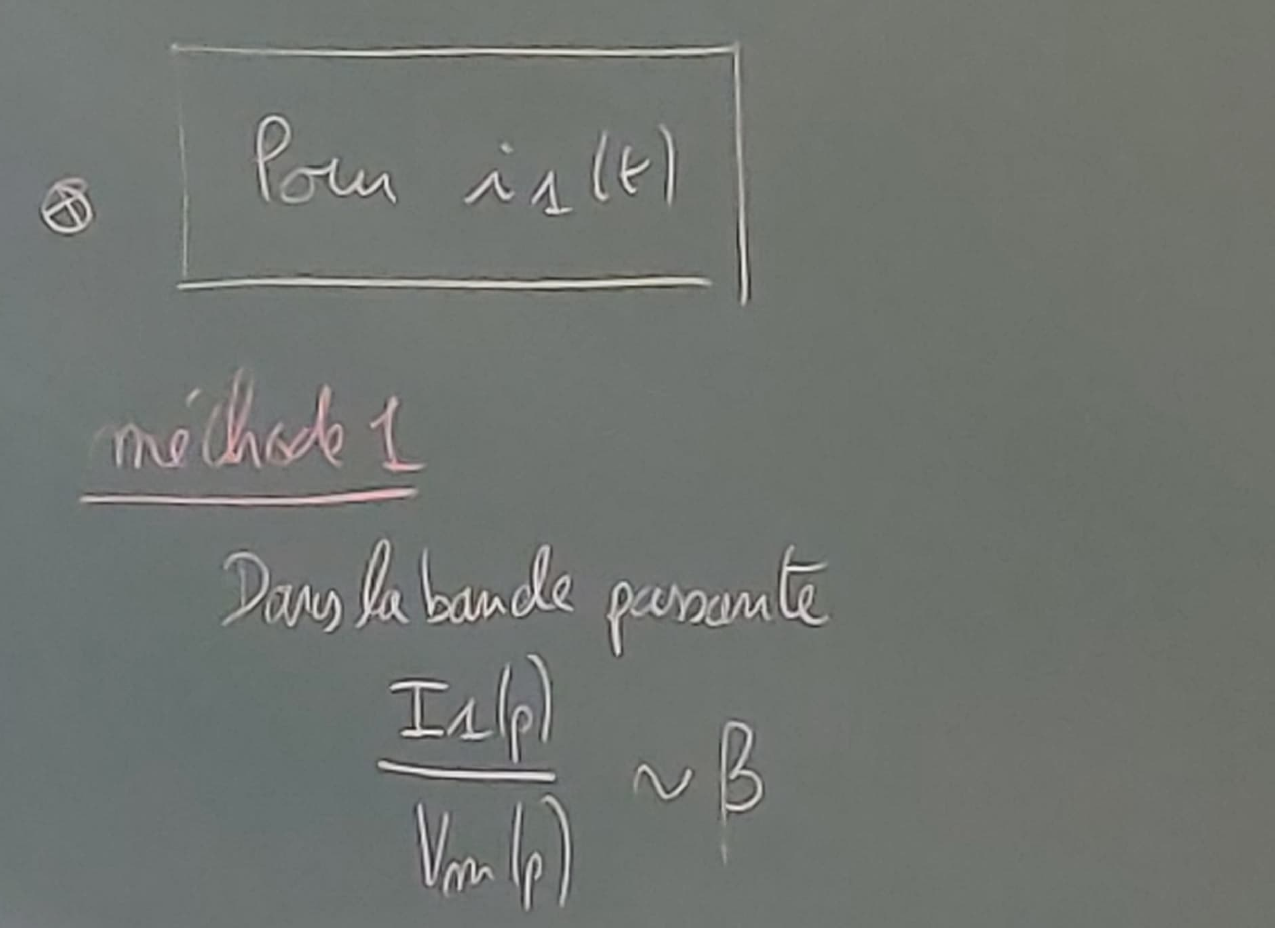 ⊗ Pour i1(t)
méthode 1
Dans la bande passante
I1(p)
/ Vm(p) ~ β